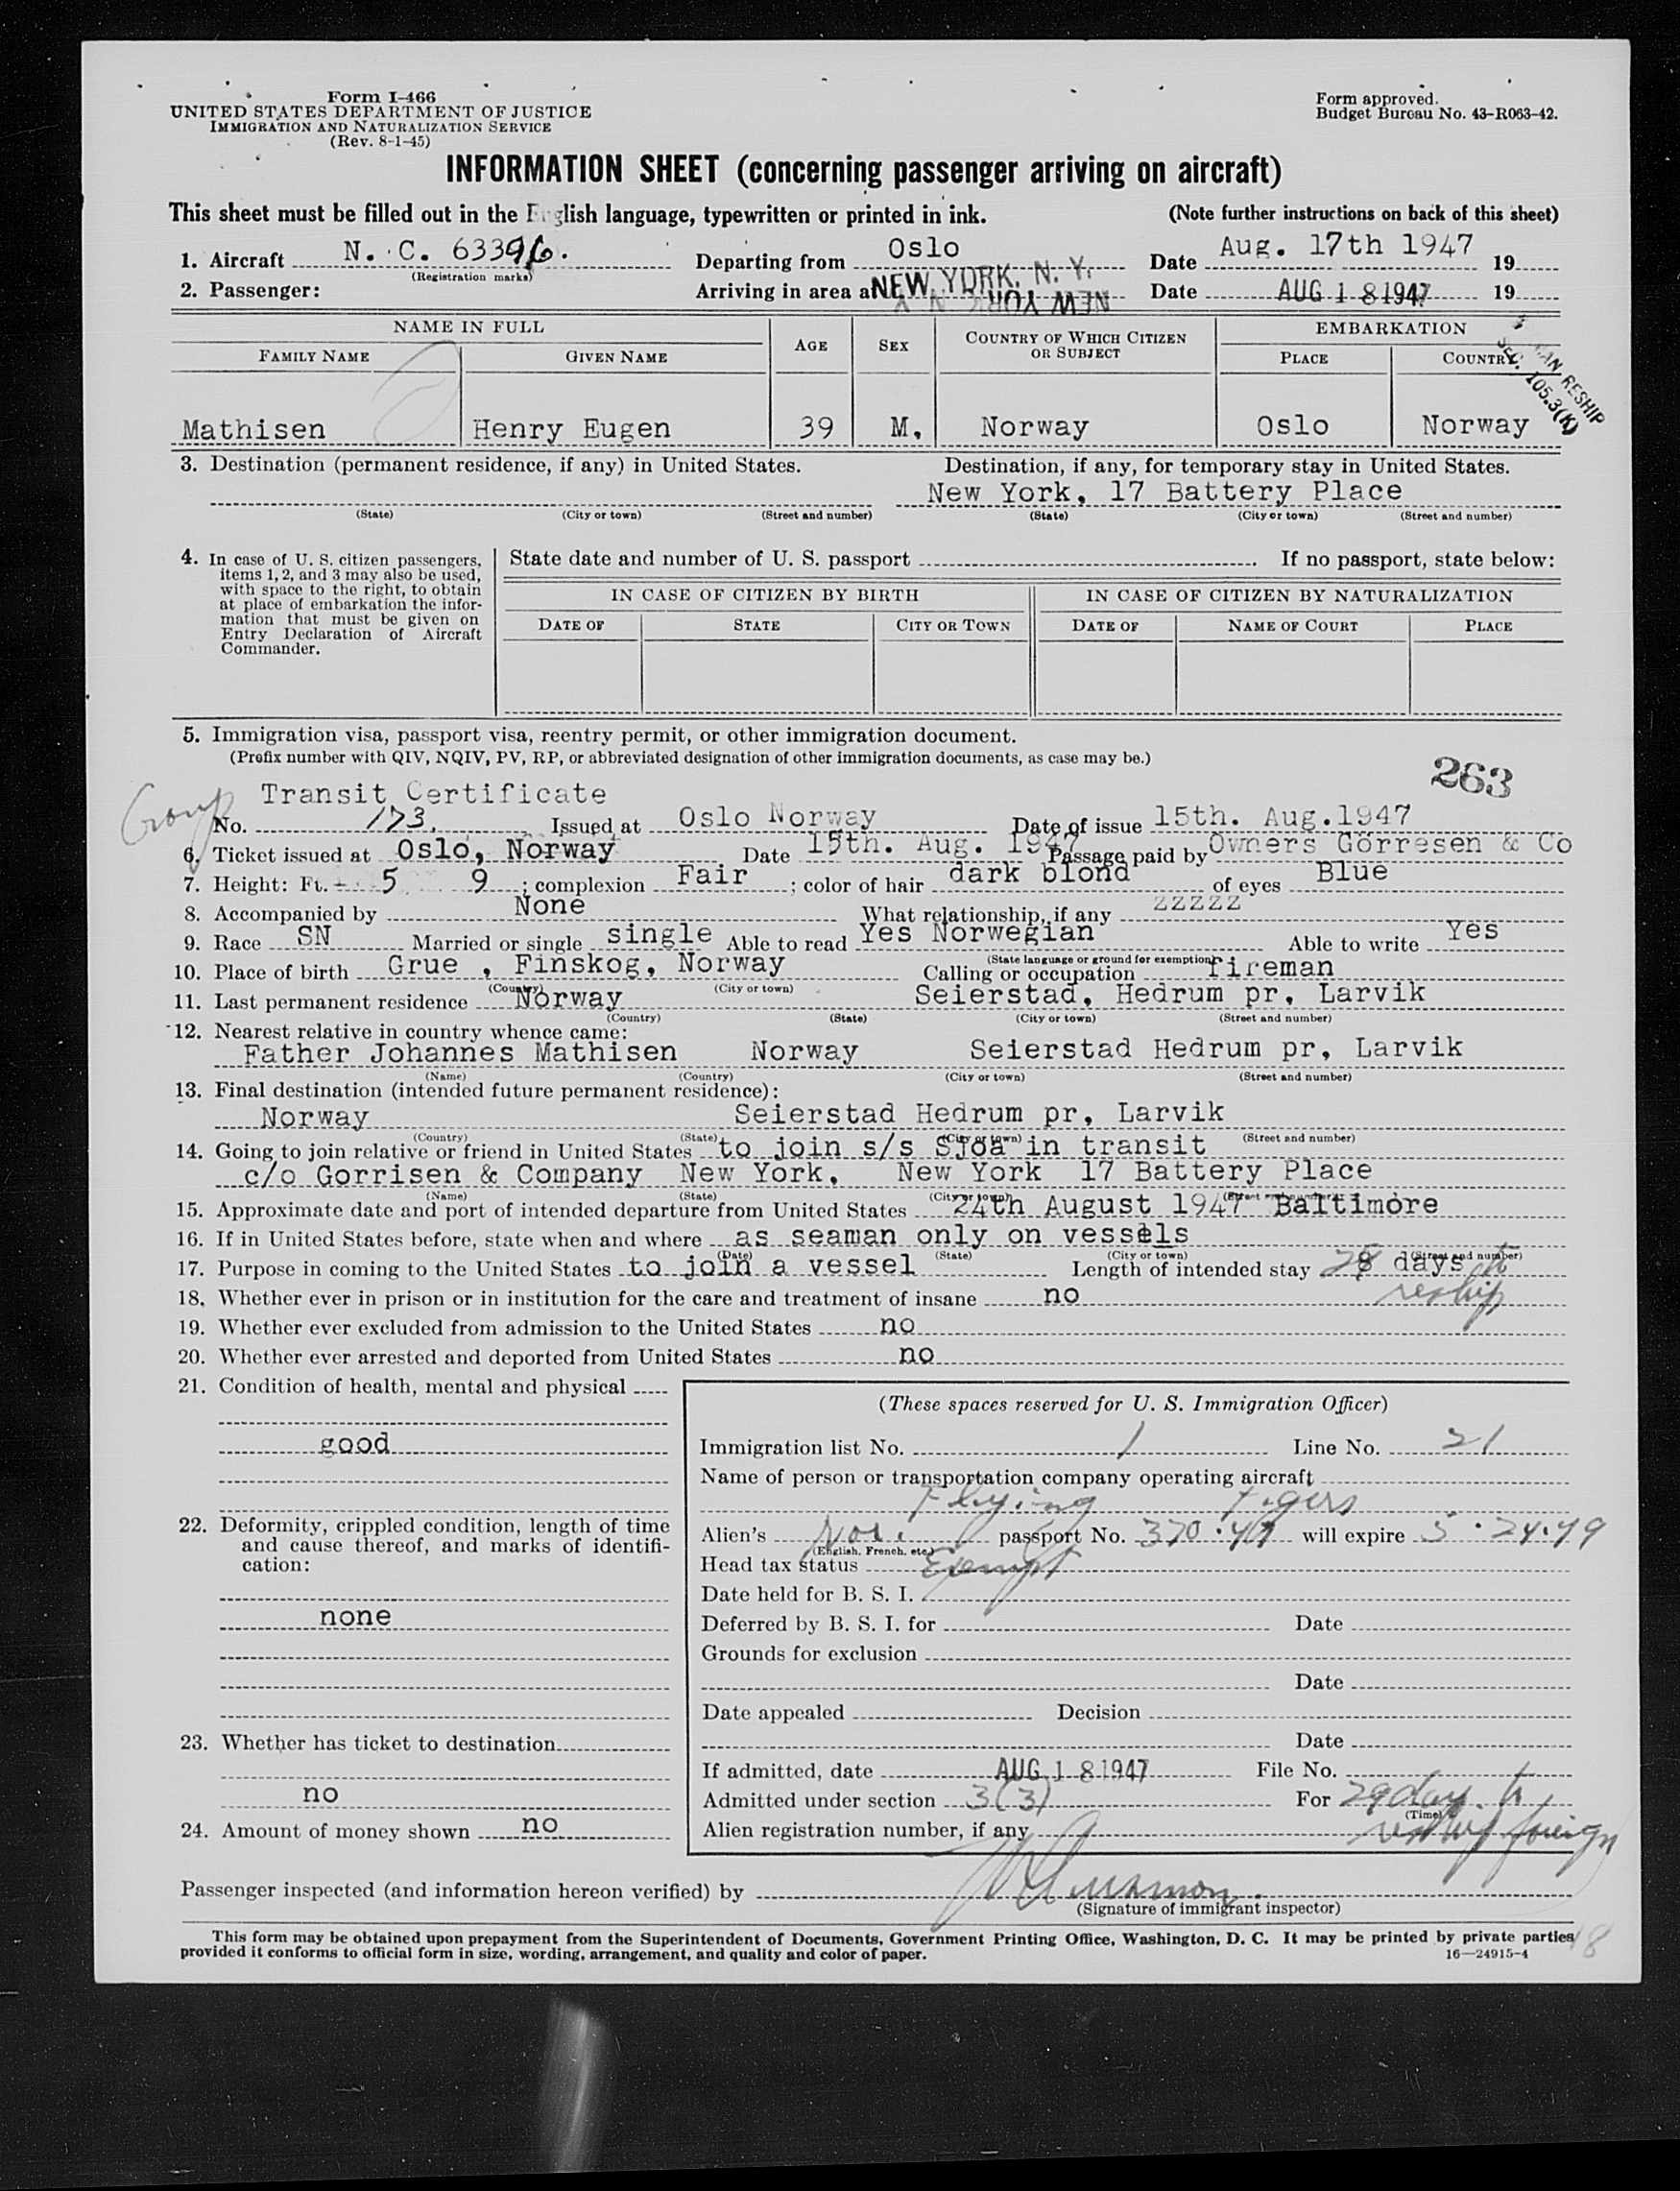 Form I-466
UNITED STATES DEPARTMENT OF JUSTICE
IMMIGRATION AND NATURALIZATION SERVICE
(Rev. 8-1-45)
Form approved.
Budget Bureau No. 43-R063-42.
INFORMATION SHEET (concerning passenger arriving on aircraft)
This sheet must be filled out in the English language, typewritten or printed in ink. (Note further instructions on back of this sheet)
1. Aircraft N. C. 63396. Departing from Oslo Date Aug. 17th 1947 19
(Registration marks)
2. Passenger: Arriving in area at NEW YORK, N. Y. Date AUG 18 1947 19
NEW YORK N Y
NAME IN FULL AGE SEX COUNTRY OF WHICH CITIZEN OR SUBJECT EMBARKATION
FAMILY NAME GIVEN NAME PLACE COUNTRY
RESHIP
SEC. 105.3(K)
Mathisen Henry Eugen 39 M. Norway Oslo Norway
3. Destination (permanent residence, if any) in United States. Destination, if any, for temporary stay in United States.
New York, 17 Battery Place
(State) (City or town) (Street and number) (State) (City or town) (Street and number)
4. In case of U. S. citizen passengers, items 1, 2, and 3 may also be used, with space to the right, to obtain at place of embarkation the information that must be given on Entry Declaration of Aircraft Commander.
State date and number of U. S. passport If no passport, state below:
IN CASE OF CITIZEN BY BIRTH IN CASE OF CITIZEN BY NATURALIZATION
DATE OF STATE CITY OR TOWN DATE OF NAME OF COURT PLACE
5. Immigration visa, passport visa, reentry permit, or other immigration document.
(Prefix number with QIV, NQIV, PV, RP, or abbreviated designation of other immigration documents, as case may be.)
263
Group Transit Certificate
No. 173. Issued at Oslo Norway Date of issue 15th. Aug.1947
6. Ticket issued at Oslo, Norway Date 15th. Aug. 1947 Passage paid by Owners Görresen & Co
7. Height: Ft. 5 9 ; complexion Fair ; color of hair dark blond of eyes Blue
8. Accompanied by None What relationship, if any zzzzz
9. Race SN Married or single single Able to read Yes Norwegian Able to write Yes
(State language or ground for exemption)
10. Place of birth Grue , Finskog, Norway Calling or occupation fireman
(Country) (City or town)
11. Last permanent residence Norway Seierstad, Hedrum pr, Larvik
(Country) (State) (City or town) (Street and number)
12. Nearest relative in country whence came:
Father Johannes Mathisen Norway Seierstad Hedrum pr, Larvik
(Name) (Country) (City or town) (Street and number)
13. Final destination (intended future permanent residence):
Norway Seierstad Hedrum pr, Larvik
(Country) (State) (City or town) (Street and number)
14. Going to join relative or friend in United States to join s/s Sjoa in transit
c/o Gorrisen & Company New York, New York 17 Battery Place
(Name) (State) (City or town) (Street and number)
15. Approximate date and port of intended departure from United States 24th August 1947 Baltimore
16. If in United States before, state when and where as seaman only on vessels
(Date) (State) (City or town) (Street and number)
17. Purpose in coming to the United States to join a vessel Length of intended stay 8 days to
reship
18. Whether ever in prison or in institution for the care and treatment of insane no
19. Whether ever excluded from admission to the United States no
20. Whether ever arrested and deported from United States no
21. Condition of health, mental and physical
good
22. Deformity, crippled condition, length of time and cause thereof, and marks of identification:
none
23. Whether has ticket to destination
no
24. Amount of money shown no
(These spaces reserved for U. S. Immigration Officer)
Immigration list No. 1 Line No. 21
Name of person or transportation company operating aircraft
Flying Tigers
Alien's Nor. passport No. 370.47 will expire 5.24.49
(English, French, etc.)
Head tax status Exempt
Date held for B. S. I.
Deferred by B. S. I. for Date
Grounds for exclusion
Date
Date appealed Decision
Date
If admitted, date AUG 18 1947 File No.
Admitted under section 3(3) For 29 day. to
(Time)
Alien registration number, if any reship foreign
Passenger inspected (and information hereon verified) by
(Signature of immigrant inspector)
This form may be obtained upon prepayment from the Superintendent of Documents, Government Printing Office, Washington, D. C. It may be printed by private parties
provided it conforms to official form in size, wording, arrangement, and quality and color of paper. 16—24915-4
18